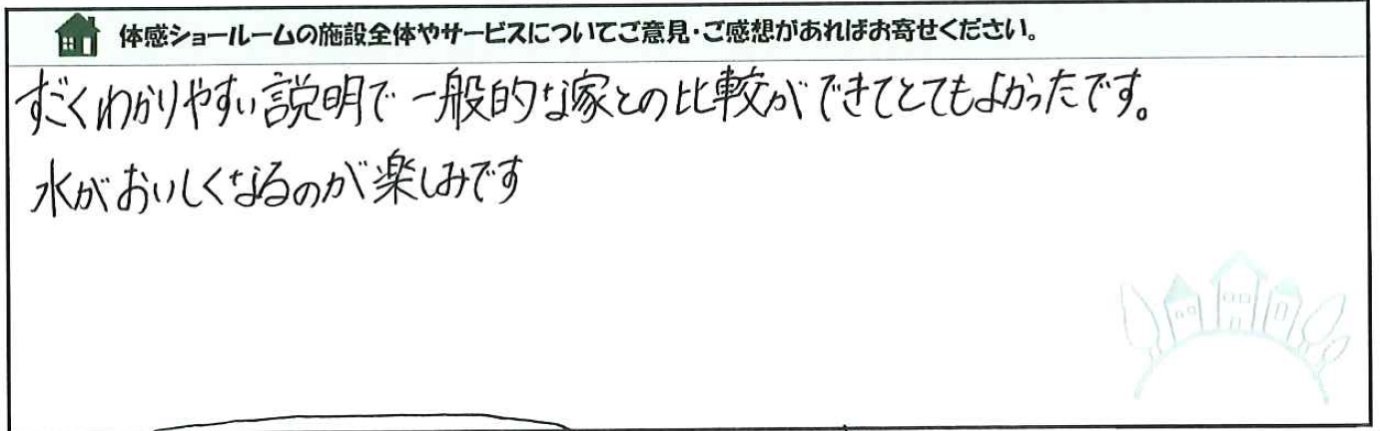 体感ショールームの施設全体やサービスについてご意見・ご感想があればお寄せください。
すごくわかりやすい説明で一般的な家との比較ができてとてもよかったです。
水がおいしくなるのが楽しみです